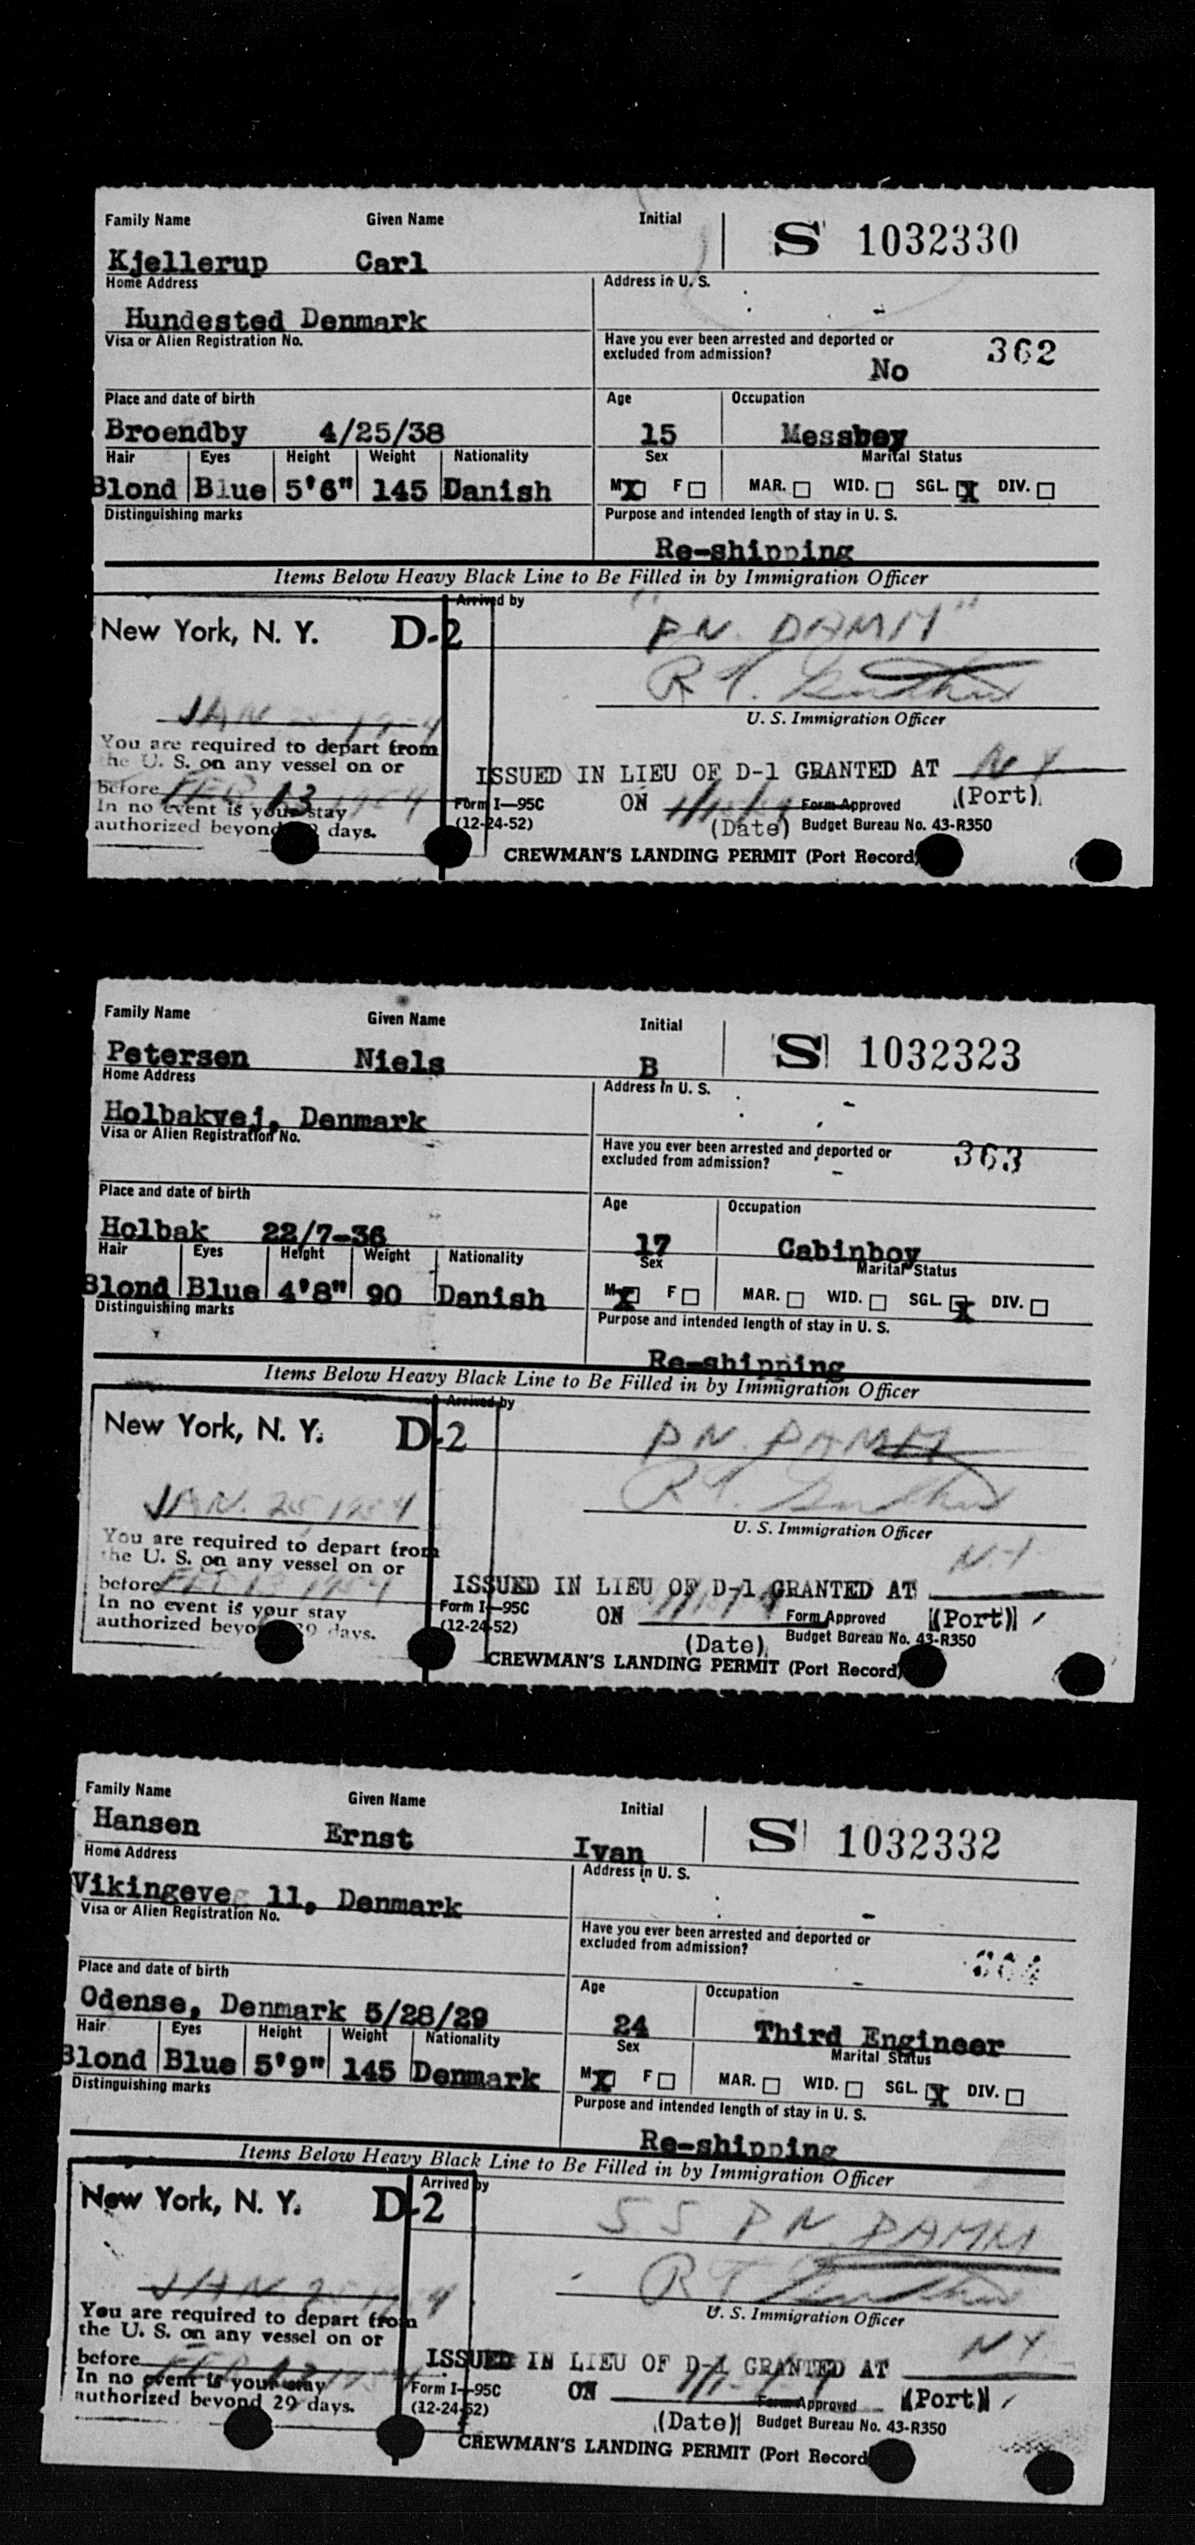 Family Name Given Name Initial S 1032330
Kjellerup Carl
Home Address Address in U. S.
Hundested Denmark
Visa or Alien Registration No. Have you ever been arrested and deported or
excluded from admission? No 362
Place and date of birth Age Occupation
Broendby 4/25/38 15 Messboy
Hair Eyes Height Weight Nationality Sex Marital Status
Blond Blue 5'6" 145 Danish M X F MAR. WID. SGL. X DIV.
Distinguishing marks Purpose and intended length of stay in U. S.
Re-shipping
Items Below Heavy Black Line to Be Filled in by Immigration Officer
Arrived by
New York, N. Y. D-2 "P.N. DAMM"
JAN 1954 U. S. Immigration Officer
You are required to depart from
the U. S. on any vessel on or ISSUED IN LIEU OF D-1 GRANTED AT NY
before FEB 13 1954 Form I—95C ON Form Approved (Port)
In no event is your stay (12-24-52) (Date) Budget Bureau No. 43-R350
authorized beyond days.
CREWMAN'S LANDING PERMIT (Port Record)
Family Name Given Name Initial S 1032323
Petersen Niels B
Home Address Address in U. S.
Holbakvej, Denmark
Visa or Alien Registration No. Have you ever been arrested and deported or
excluded from admission? 363
Place and date of birth Age Occupation
Holbak 22/7-36 17 Cabinboy
Hair Eyes Height Weight Nationality Sex Marital Status
Blond Blue 4'8" 90 Danish M X F MAR. WID. SGL. X DIV.
Distinguishing marks Purpose and intended length of stay in U. S.
Re-shipping
Items Below Heavy Black Line to Be Filled in by Immigration Officer
Arrived by
New York, N. Y. D-2 P.N. DAMM
JAN. 25, 1954 U. S. Immigration Officer
You are required to depart from
the U. S. on any vessel on or N.Y
before FEB 1954 ISSUED IN LIEU OF D-1 GRANTED AT
In no event is your stay Form I—95C ON Form Approved (Port)
authorized beyond 29 days. (12-24-52) (Date) Budget Bureau No. 43-R350
CREWMAN'S LANDING PERMIT (Port Record)
Family Name Given Name Initial S 1032332
Hansen Ernst Ivan
Home Address Address in U. S.
Vikingeveg 11, Denmark
Visa or Alien Registration No. Have you ever been arrested and deported or
excluded from admission? 364
Place and date of birth Age Occupation
Odense, Denmark 5/28/29 24 Third Engineer
Hair Eyes Height Weight Nationality Sex Marital Status
Blond Blue 5'9" 145 Denmark M X F MAR. WID. SGL. X DIV.
Distinguishing marks Purpose and intended length of stay in U. S.
Re-shipping
Items Below Heavy Black Line to Be Filled in by Immigration Officer
Arrived by
New York, N. Y. D-2 SS P.N. DAMM
JAN 25 1954 U. S. Immigration Officer
You are required to depart from
the U. S. on any vessel on or NY
before FEB ISSUED IN LIEU OF D-1 GRANTED AT
In no event is your stay Form I—95C ON Form Approved (Port)
authorized beyond 29 days. (12-24-52) (Date) Budget Bureau No. 43-R350
CREWMAN'S LANDING PERMIT (Port Record)